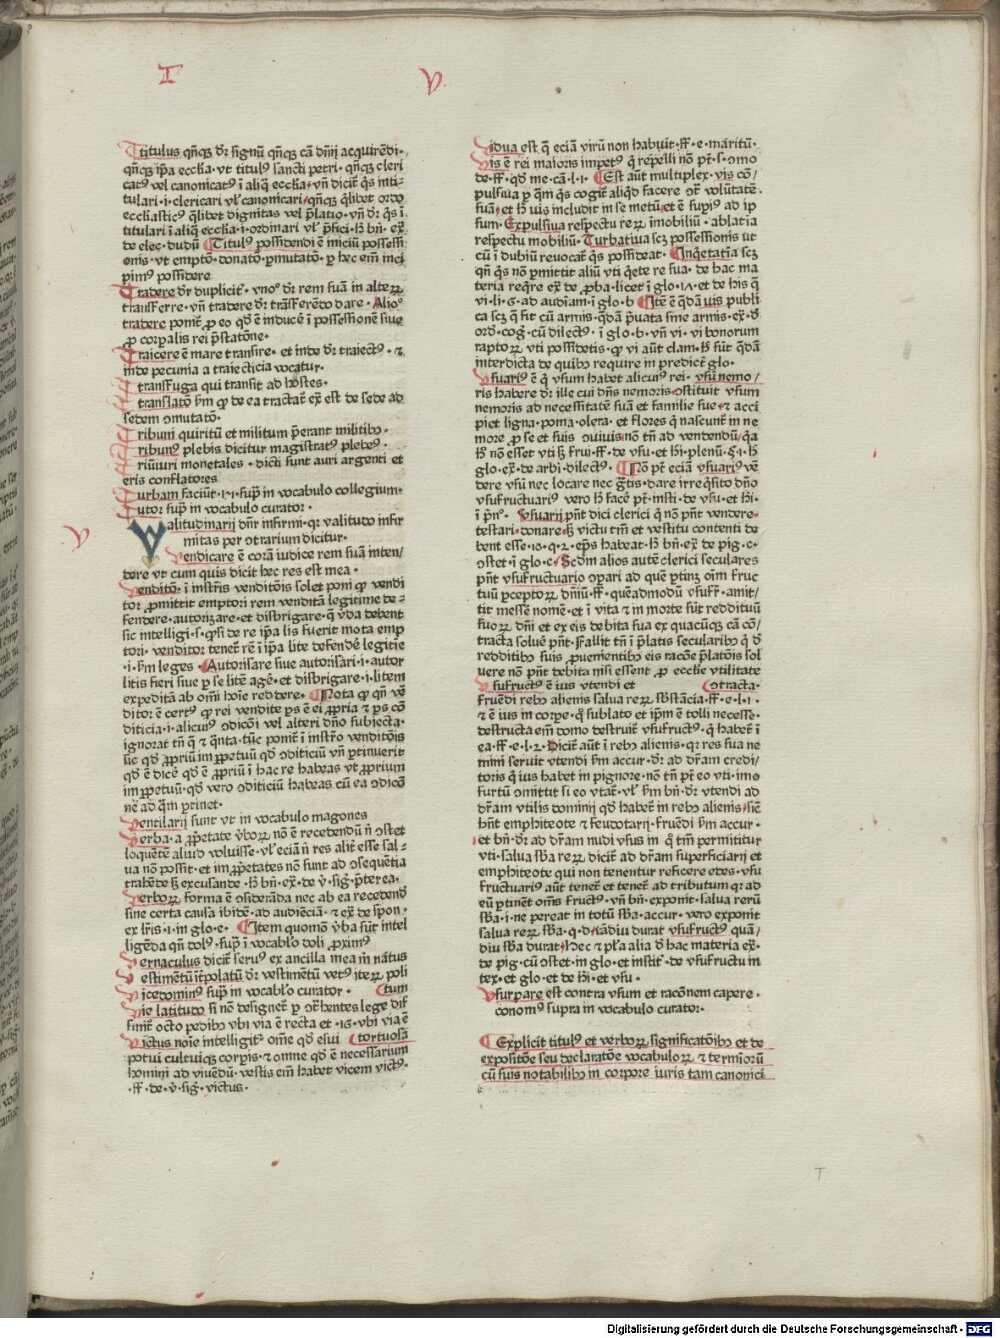 T
V
Titulus qñqꝫ dr̄ signū qñqꝫ cā dnīj acquirēdi ·
qñqꝫ ip̄a eccl̄ia · vt titulus sancti petri · qñqꝫ cleri
catꝰ vel canonicatꝰ ī aliq̄ eccl̄ia · vn̄ dicit̄ q̄s inti-
tulari · i · clericari vl̄ canonicari · qñqꝫ q̄libet ordo
ecclesiasticꝰ q̄libet dignitas vel p̄latio · vn̄ dr̄ q̄s ī
titulari ī aliq̄ eccl̄ia · i · ordinari vl̄ p̄fici · h̄ bn̄ · ex̄
de elec · dudū Titulꝰ possidendi ē iniciū possessi
onis · vt emptō · donatō · ꝑmutatō · ꝑ hec em̄ inci
pimꝰ possidere
Tradere dr̄ duplicit̄ · vnoº dr̄ rem suā in alteꝝ
transferre · vn̄ tradere dr̄ trāsferēdo dare · Alioº
tradere ponit̄ ꝓ eo qd̄ ē inducē ī possessionē siue
ꝓ corꝑalis rei p̄statōne ·
Traicere ē mare transire · et inde dr̄ traiectꝰ · ⁊
inde pecunia a traiecticia vocatur ·
transfuga qui transit ad hostes ·
translatō s̄m ꝙ de ea tractat̄ ex̄ est de sede ad
sedem ↄmutatō ·
Tribuni quiritū et militum p̄erant militibꝫ ·
Tribunꝰ plebis dicitur magistratꝰ plebeꝰ ·
Triūuiri monetales · dicti sunt auri argenti et
eris conflatores
Turbam faciūt · ivi · sup̄ in vocabulo collegium ·
Tutor sup̄ in vocabulo curator ·
V
Valitudinarij dn̄r infirmi · qr valitudo infir
mitas per ↄtrarium dicitur ·
Vendicare ē corā iudice rem suā inten/
dere vt cum quis dicit hec res est mea ·
Venditō · ī instr̄is venditōis solet poni ꝙ vendi
tor ꝓmittit emptori rem venditā legitime de-
fendere · autorizare · et disbrigare · q̄ v̄ba debent
sic intelligi · s · ꝙ si de re ip̄a lis fuerit mota emp
tori · venditor tenet̄ rē ī ip̄a lite defendē legitīe
· i · s̄m leges · Autorisare siue autorisari · i · autor
litis fieri siue ꝑ se litē agē · et disbrigare · i · litem
expeditā ab om̄i hoīe reddere · Nota ꝙ qn̄ vē
ditor ē certꝰ ꝙ rei vendite ꝓs ē ei ꝓpria ⁊ ꝓs cō
diticia · i · alicuiꝰ ↄdicōi vel alteri dn̄o subiecta ·
ignorat tn̄ q̄ ⁊ q̄nta · tūc ponit̄ ī instr̄o venditōis
sic qd̄ ꝓpriū im ꝑpetuū qd̄ ↄditiciū vn̄ ꝑtinuerit
qd̄ ē dicē qd̄ ē ꝓpriū ī hac re habeas vt ꝓprium
im ꝑpetuū · qd̄ vero ↄditiciū habeas cū ea ↄdicō
nē ad q̄m ꝑtinet ·
Ventilarij sunt vt in vocabulo magones
Verba · a ꝓp̄etate v̄boꝝ nō ē recedendū n̄ ↄstet
loquētē aliud voluisse · vl̄ eciā n̄ res alit̄ esse sal-
ua nō possit · et im ꝓp̄etates nō sunt ad ↄsequētia
trahēde sꝫ excusande · h̄ bn̄ · ex̄ · de v̄ · sig · p̄terea ·
Verboꝝ forma ē ↄsiderāda nec ab ea recedend̄
sine certa causa ibidē · ad audiēciā · ⁊ ex̄ de spon ·
ex lr̄is · i · in glo · e · Item quomō v̄ba sūt intel
ligēda qn̄ dolꝰ · sup̄ ī vocabl̄o doli ꝓximꝰ
Vernaculus dicit̄ seruꝰ ex ancilla mea m̄ natus
Vestimētū it̄polatū dr̄ vestimētū vetꝰ iteꝝ poli
Vicedominꝰ sup̄ in vocabl̄o curator · tum
Vie latitudo si nō designet̄ ꝑ ↄtrahentes lege dif
finit̄ octo pedibꝫ vbi via ē recta et · 16 · vbi via ē
Victus noīe intelligit̄ om̄e qd̄ esui tortuosā
potui cultuiqꝫ corꝑis · ⁊ omne qd̄ ē necessarium
homini ad viuēdū · vestis em̄ habet vicem victꝰ ·
· ff · de · v̄ · sig · victus ·
Vidua est q̄ eciā virū non habuit · ff · e · maritū ·
Vis ē rei maioris impetꝰ q̄ repelli nō pt̄ · s · ↄmo
de · ff · qd̄ me · cā · l · i · Est aūt multiplex · vis cō/
pulsiua ꝑ q̄m q̄s cogit̄ aliqd̄ facere ↄt̄ volūtatē ·
suā · et h̄ vis includit in se metū · et ē sup̄iꝰ ad ip
sum · Expulsiua respectu reꝝ imobiliū · ablatia
respectu mobiliū · Turbatiua scꝫ possessionis ut
cū ī dubiū reuocat̄ q̄s possideat · Inq̄etatīa scꝫ
qn̄ q̄s nō ꝑmittit aliū vti q̄ete re sua · de hac ma
teria req̄re ex̄ de ꝓba · licet ī glo · iᴧ · et de his q̄
vi · li · 6 · ad audiam · ī glo · b Itē ē q̄dā uis publi
ca scꝫ q̄ fit cū armis · q̄dā p̄uata sine armis · ex̄ · d̄
ord̄ · cog · cū dilectꝰ · ī glo · b · vn̄ vi · vi bonorum
raptoꝝ vti possidetis · ꝙ vi aūt clam · h̄ sūt q̄dā
interdicta de quibꝫ require in predict̄ glo ·
Vsuariꝰ ē q̄ vsum habet alicuiꝰ rei · vsū nemo/
ris habere dr̄ ille cui dn̄s nemoris ↄstituit vsum
nemoris ad necessitatē suā et familie sue · ⁊ acci
piet ligna · poma · olera · et flores q̄ nascunt̄ in ne
more · ꝓ se et suis ↄuiuis · nō tn̄ ad vendendū · q̄a
h̄ nō esset vti sꝫ frui · ff · de vsu · et hī · plenū · §· i · h̄
glo · ex̄ · de arbi · dilectꝰ · Nō pt̄ eciā vsuariꝰ vē
dere vsū nec locare nec gr̄tis · dare irreq̄sito dn̄o
vsufructuariꝰ vero h̄ facē pt̄ · insti · de vsu · et hī ·
ī p̄nº · Vsuarij pn̄t dici clerici q̄ nō pn̄t vendere ·
testari · donare · sꝫ victu tm̄ et vestitu contenti de
bent esse · 10 · q · 2 · ep̄s habeat · h̄ bn̄ · ex̄ de pig · c ·
ↄstet · ī glo · c · Scdm alios autē clerici seculares
pn̄t vsufructuario ↄpari ad quē ꝑtinꝫ oīm fruc
tuū ꝑceptoꝝ dn̄iū · ff · queadmodū vsufr̄ · amit/
tit messē nomē · et ī vita ⁊ in morte sūt reddituū
suoꝝ dn̄i et ex eis debita sua ex quacūqꝫ cā cō/
tracta soluē pn̄t · Fallit tn̄ ī p̄latis secularibꝫ q̄ d̄
redditibꝫ suis ꝓuenientibꝫ eis racōe p̄latōis sol
uere nō pn̄t debita nisi essent ꝓ eccl̄ie vtilitate
Vsufructꝰ ē ius vtendi et ↄtracta ·
fruēdi rebꝫ alienis salua reꝝ sb̄stācia · ff · e · l · i ·
⁊ ē ius in corꝑe · q̄ sublato et ip̄m ē tolli necesse ·
destructa em̄ domo destruit̄ vsufructꝰ · q̄ habet̄ ī
ea · ff · e · l · 2 · Dicit̄ aūt ī rebꝫ alienis · qr res sua ne
mini seruit vtendi s̄m accur · dr̄ ad dr̄am credi/
toris q̄ ius habet in pignore · nō tn̄ pt̄ eo vti · imo
furtū ↄmittit si eo vtat̄ · vl̄ s̄m bn̄ · dr̄ vtendi ad
dr̄am vtilis dominij qd̄ habet̄ in rebꝫ alienis · sic̄
hn̄t emphiteote ⁊ feudotarij · fruēdi s̄m accur ·
et bn̄ · dr̄ ad dr̄am nudi vsus in q̄ tm̄ permittitur
vti · salua sb̄a reꝝ dicit̄ ad dr̄am superficiarij et
emphiteote qui non tenentur reficere edes · vsu
fructuariꝰ aūt tenet̄ et tenet̄ ad tributum qr ad
eū ꝑtinēt om̄s fructꝰ · vn̄ bn̄ · exponit · salua rerū
sb̄a · i · ne pereat in totū sb̄a · accur · vero exponit
salua reꝝ sb̄a · q · d · tādiu durat vsufructꝰ quā/
diu sb̄a durat · Hec ⁊ pl̄a alia d̄ hac materia ex̄ ·
de pig · cū ↄstet · in glo · et instit̄ · de vsufructu in
tex · et glo · et de hī · et vsu ·
Vsurpare est contra vsum et racōnem capere ·
conomꝰ supra in vocabulo curator ·
Explicit titulꝰ et verboꝝ significatōibꝫ et de
expositōe seu declaratōe vocabuloꝝ ⁊ termīorū
cū suis notabilibꝫ in corpore iuris tam canonici
T
Digitalisierung gefördert durch die Deutsche Forschungsgemeinschaft - DFG